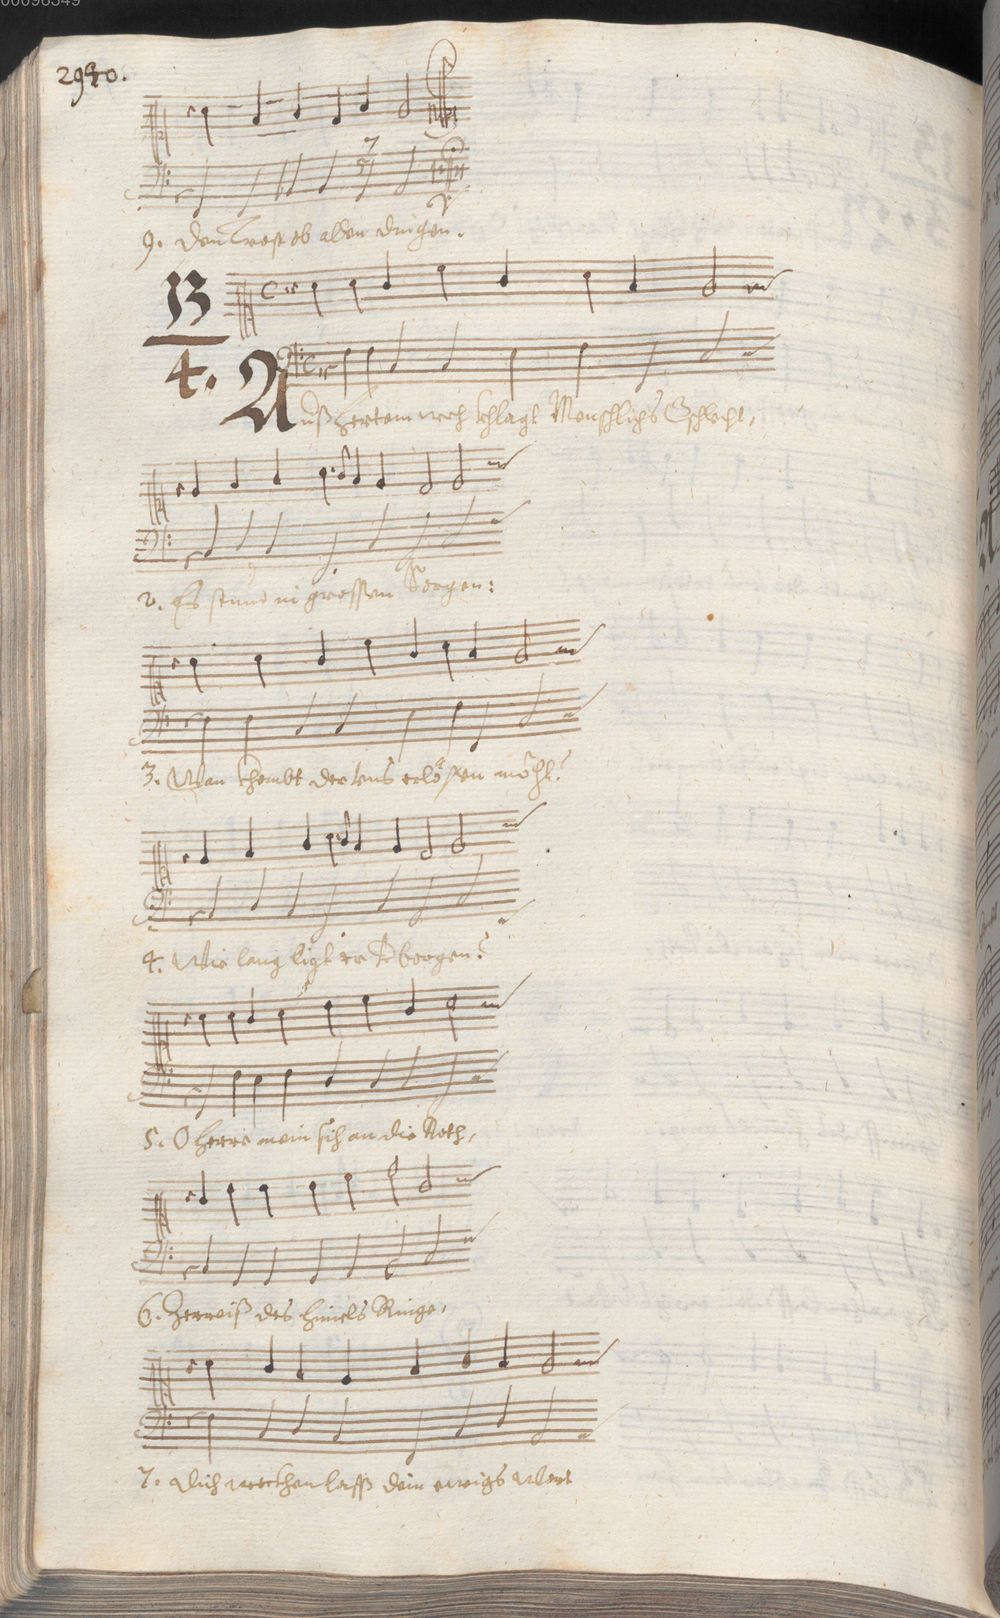 00096349
2940.
9. Den Trost ob allen dingen.
13
4.
Auß hertem wech khlagt Menschlichs Gschlecht,
2. Es stund in grossen Sorgen:
3. Wan khombt der uns erlösen möcht?
4. Wie lang ligt er verborgen?
5. O Herre mein sich an die Noth,
6. Zerreiß des himels Ringe,
7. Dich wecken lasß dein ewigs Wort